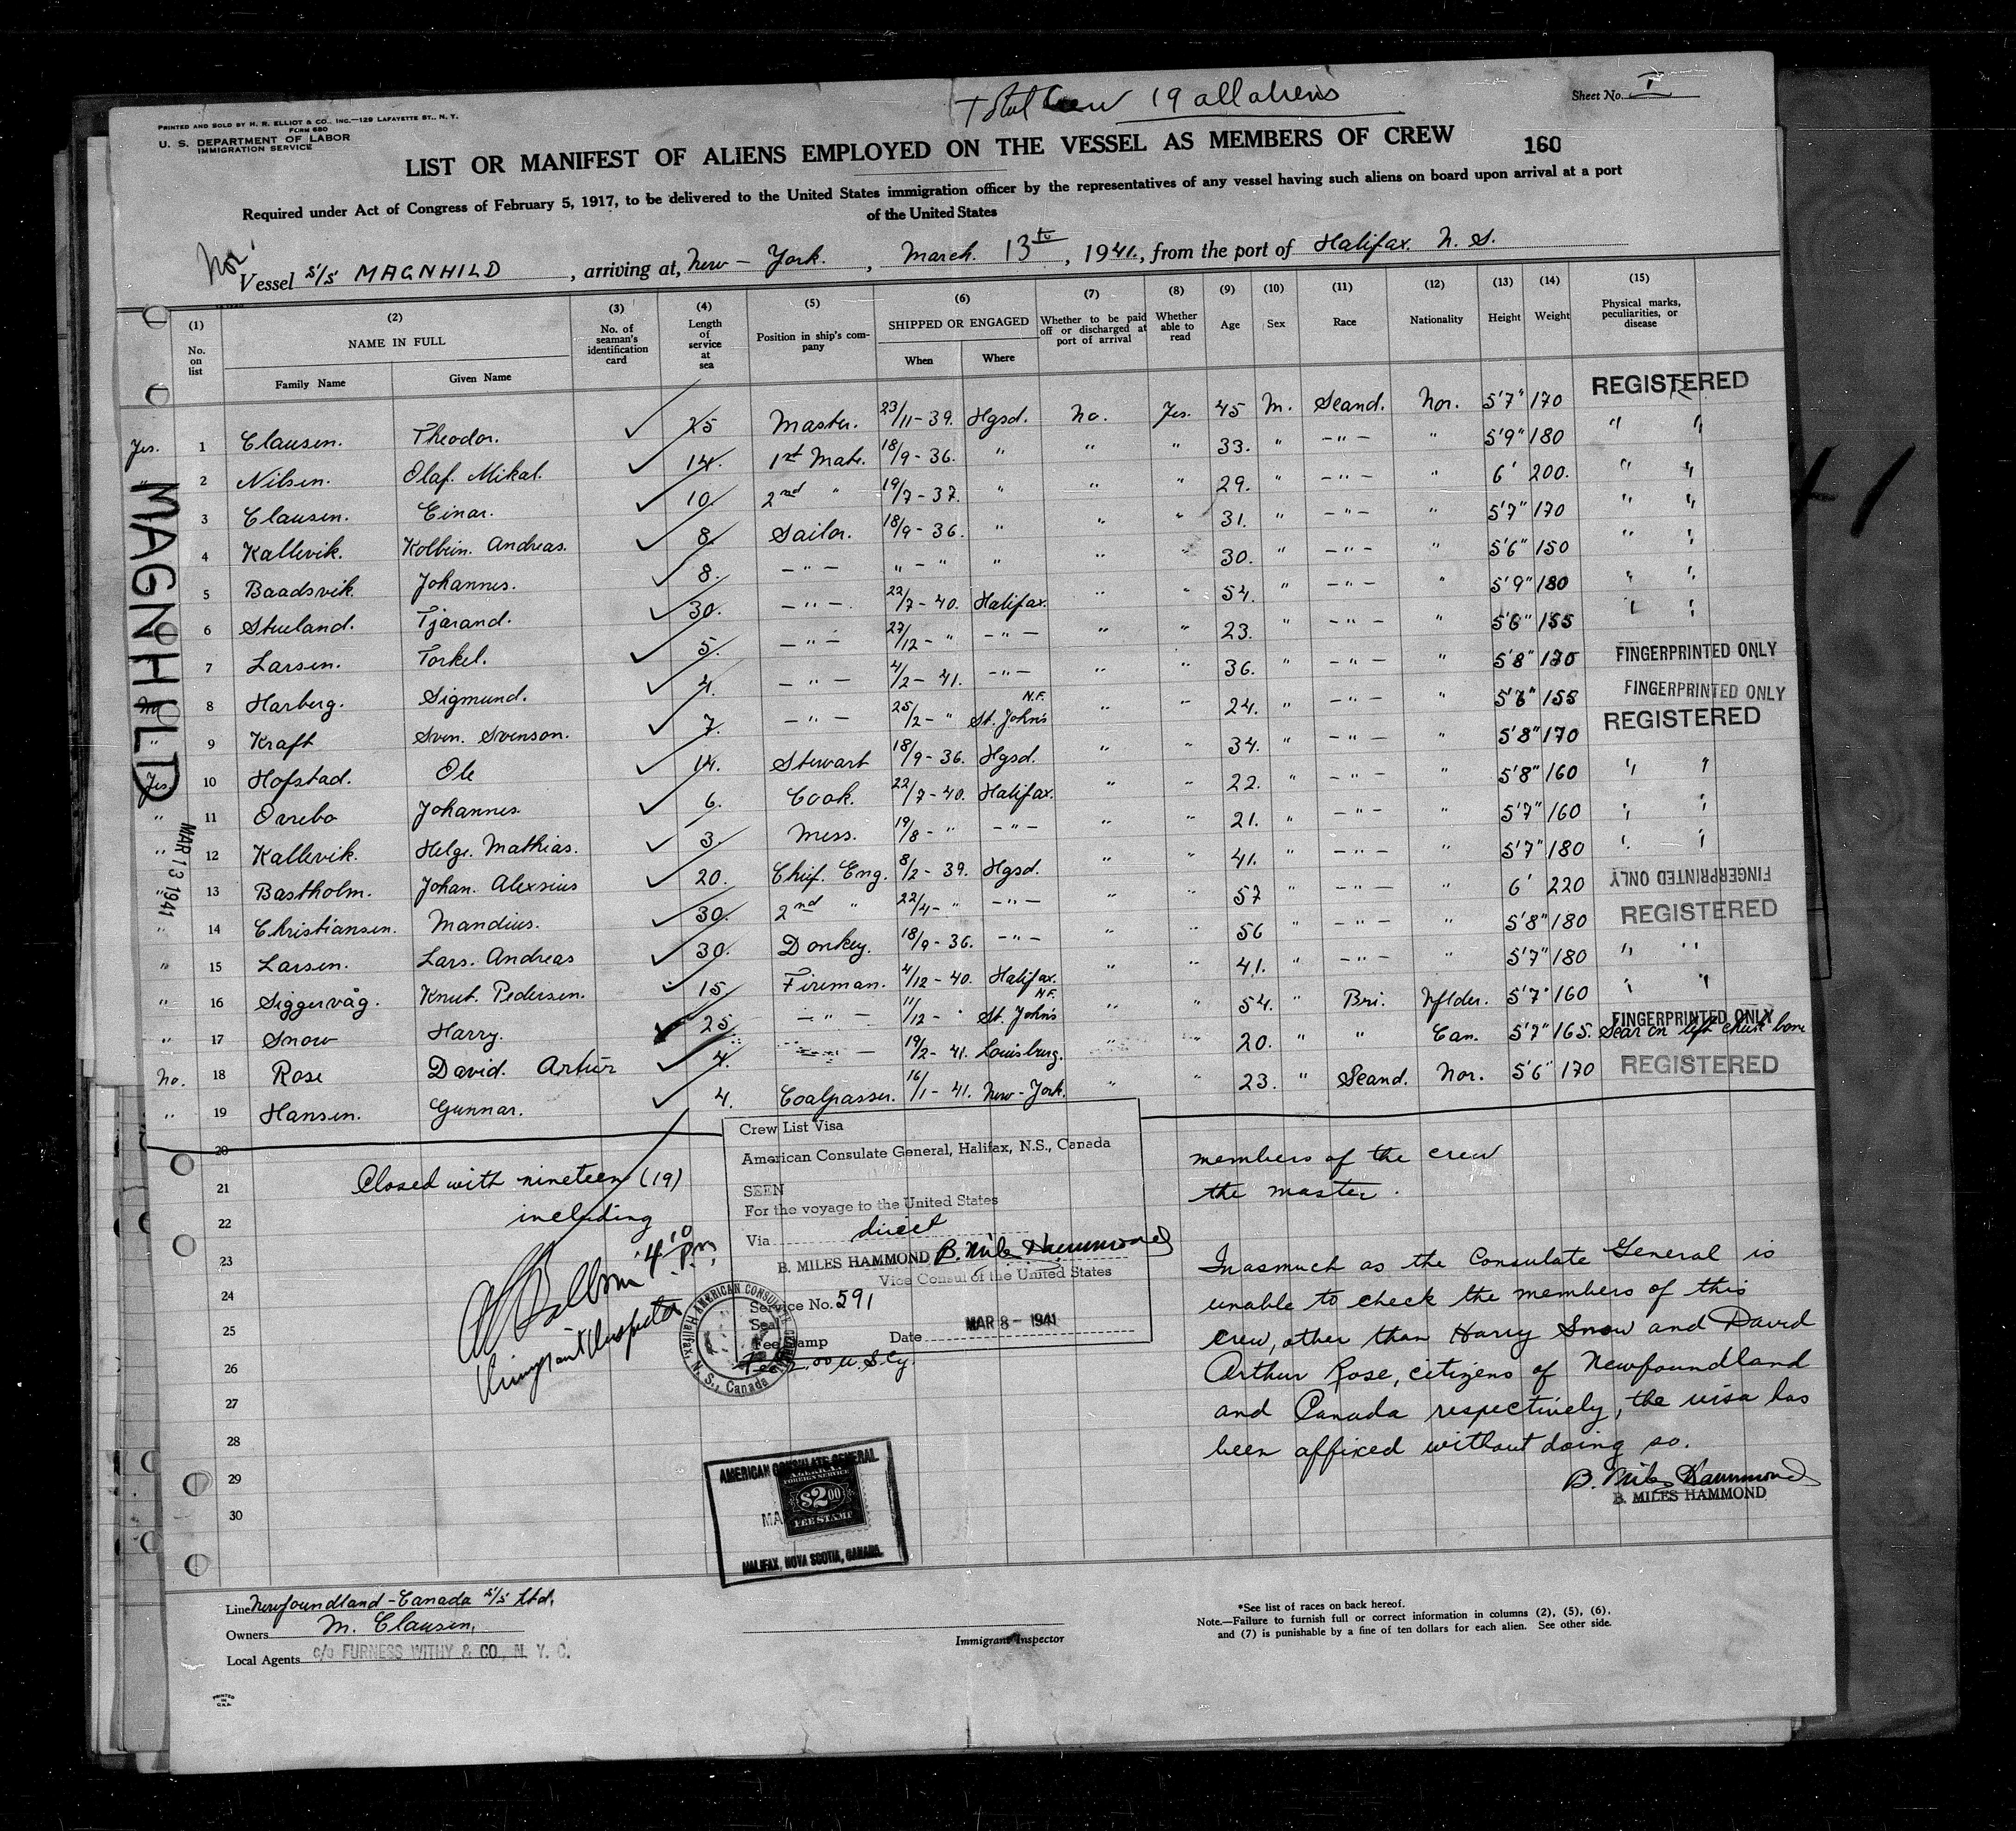 Total Crew 19 all aliens
Sheet No. I
PRINTED AND SOLD BY H. R. ELLIOT & CO., INC.—129 LAFAYETTE ST., N. Y.
FORM 680
U. S. DEPARTMENT OF LABOR
IMMIGRATION SERVICE
LIST OR MANIFEST OF ALIENS EMPLOYED ON THE VESSEL AS MEMBERS OF CREW 160
Required under Act of Congress of February 5, 1917, to be delivered to the United States immigration officer by the representatives of any vessel having such aliens on board upon arrival at a port
of the United States
Nor.
Vessel S/S MAGNHILD, arriving at, New - York., March. 13th, 1941., from the port of Halifax. N. S.
(1) No. on list
(2) NAME IN FULL
Family Name Given Name
(3) No. of seaman's identification card
(4) Length of service at sea
(5) Position in ship's company
(6) SHIPPED OR ENGAGED
When Where
(7) Whether to be paid off or discharged at port of arrival
(8) Whether able to read
(9) Age
(10) Sex
(11) Race
(12) Nationality
(13) Height
(14) Weight
(15) Physical marks, peculiarities, or disease
Yes. 1 Clausen. Theodor. 25 Master. 23/11-39. Hgsd. No. Yes. 45 M. Scand. Nor. 5'7" 170 REGISTERED
" 2 Nilsen. Olaf. Mikal. 14. 1st Mate. 18/9-36. " " " 33. " -"- " 5'9" 180 " "
3 Clausen. Einar. 10. 2nd " 19/7-37. " " " 29. " -"- " 6' 200. " "
4 Kallevik. Kolbein. Andreas. 8. Sailor. 18/9-36. " " " 31. " -"- " 5'7" 170 " "
5 Baadsvik. Johannes. 8. -"- "-" " " " 30. " -"- " 5'6" 150 " "
6 Stueland. Tjarand. 30. -"- 22/7-40. Halifax. " " 54. " -"- " 5'9" 180 " "
7 Larsen. Torkel. 5. -"- 27/12-" -"- " " 23. " -"- " 5'6" 155 " "
No 8 Harberg. Sigmund. 4. -"- 4/2-41. -"- " " 36. " -"- " 5'8" 170 FINGERPRINTED ONLY
" 9 Kraft Sven. Svenson. 7. -"- 25/2-" St. John's N.F. " " 24. " -"- " 5'6" 155 FINGERPRINTED ONLY
Yes. 10 Hofstad. Ole 14. Stewart 18/9-36. Hgsd. " " 34. " -"- " 5'8" 170 REGISTERED
" 11 Ovrebo Johannes. 6. Cook. 22/7-40. Halifax. " " 22. " -"- " 5'8" 160 " "
" 12 Kallevik. Helge. Mathias. 3. Mess. 19/8-" -"- " " 21. " -"- " 5'7" 160 " "
" 13 Bastholm. Johan. Alexsius 20. Chief. Eng. 8/2-39. Hgsd. " " 41. " -"- " 5'7" 180 " "
" 14 Christiansen. Mandius. 30. 2nd " 22/4-" -"- " " 57 " -"- " 6' 220 FINGERPRINTED ONLY
" 15 Larsen. Lars. Andreas 30. Donkey. 18/9-36. -"- " " 56 " -"- " 5'8" 180 REGISTERED
" 16 Siggervåg. Knut. Pedersen. 15 Fireman. 4/12-40. Halifax. " " 41. " -"- " 5'7" 180 " "
" 17 Snow Harry. 25 -"- 11/12-" St. John's N.F. " " 54. " Bri. Nflder. 5'7" 160 " "
No. 18 Rose David. Artur 4. -"- 19/2-41. Louisburg. " " 20. " " Can. 5'7" 165. FINGERPRINTED ONLY Scar on left cheek bone
" 19 Hansen. Gunnar. 4. Coalpasser. 16/1-41. New-York. " " 23. " Scand. Nor. 5'6" 170 REGISTERED
MAGNHILD
MAR 13 1941
20
21
22
23
24
25
26
27
28
29
30
Closed with nineteen (19) members of the crew
including the master.
4 10 pm
Immigrant Inspector
Crew List Visa
American Consulate General, Halifax, N.S., Canada
SEEN
For the voyage to the United States
Via direct
B. MILES HAMMOND B. Miles Hammond
Vice Consul of the United States
Service No. 591
Seal
Fee Stamp Date MAR 8 - 1941
AMERICAN CONSULATE GENERAL Halifax, N. S., Canada
Inasmuch as the Consulate General is
unable to check the members of this
crew, other than Harry Snow and David
Arthur Rose, citizens of Newfoundland
and Canada respectively, the visa has
been affixed without doing so.
B. Miles Hammond
B. MILES HAMMOND
AMERICAN CONSULATE GENERAL
FOREIGN SERVICE
$2.00
FEE STAMP
HALIFAX, NOVA SCOTIA, CANADA.
Line Newfoundland - Canada S/S Ltd.
Owners M. Clausen.
Local Agents c/o FURNESS WITHY & CO., N. Y. C.
Immigrant Inspector
*See list of races on back hereof.
Note.—Failure to furnish full or correct information in columns (2), (5), (6),
and (7) is punishable by a fine of ten dollars for each alien. See other side.
PRINTED IN U.S.A.